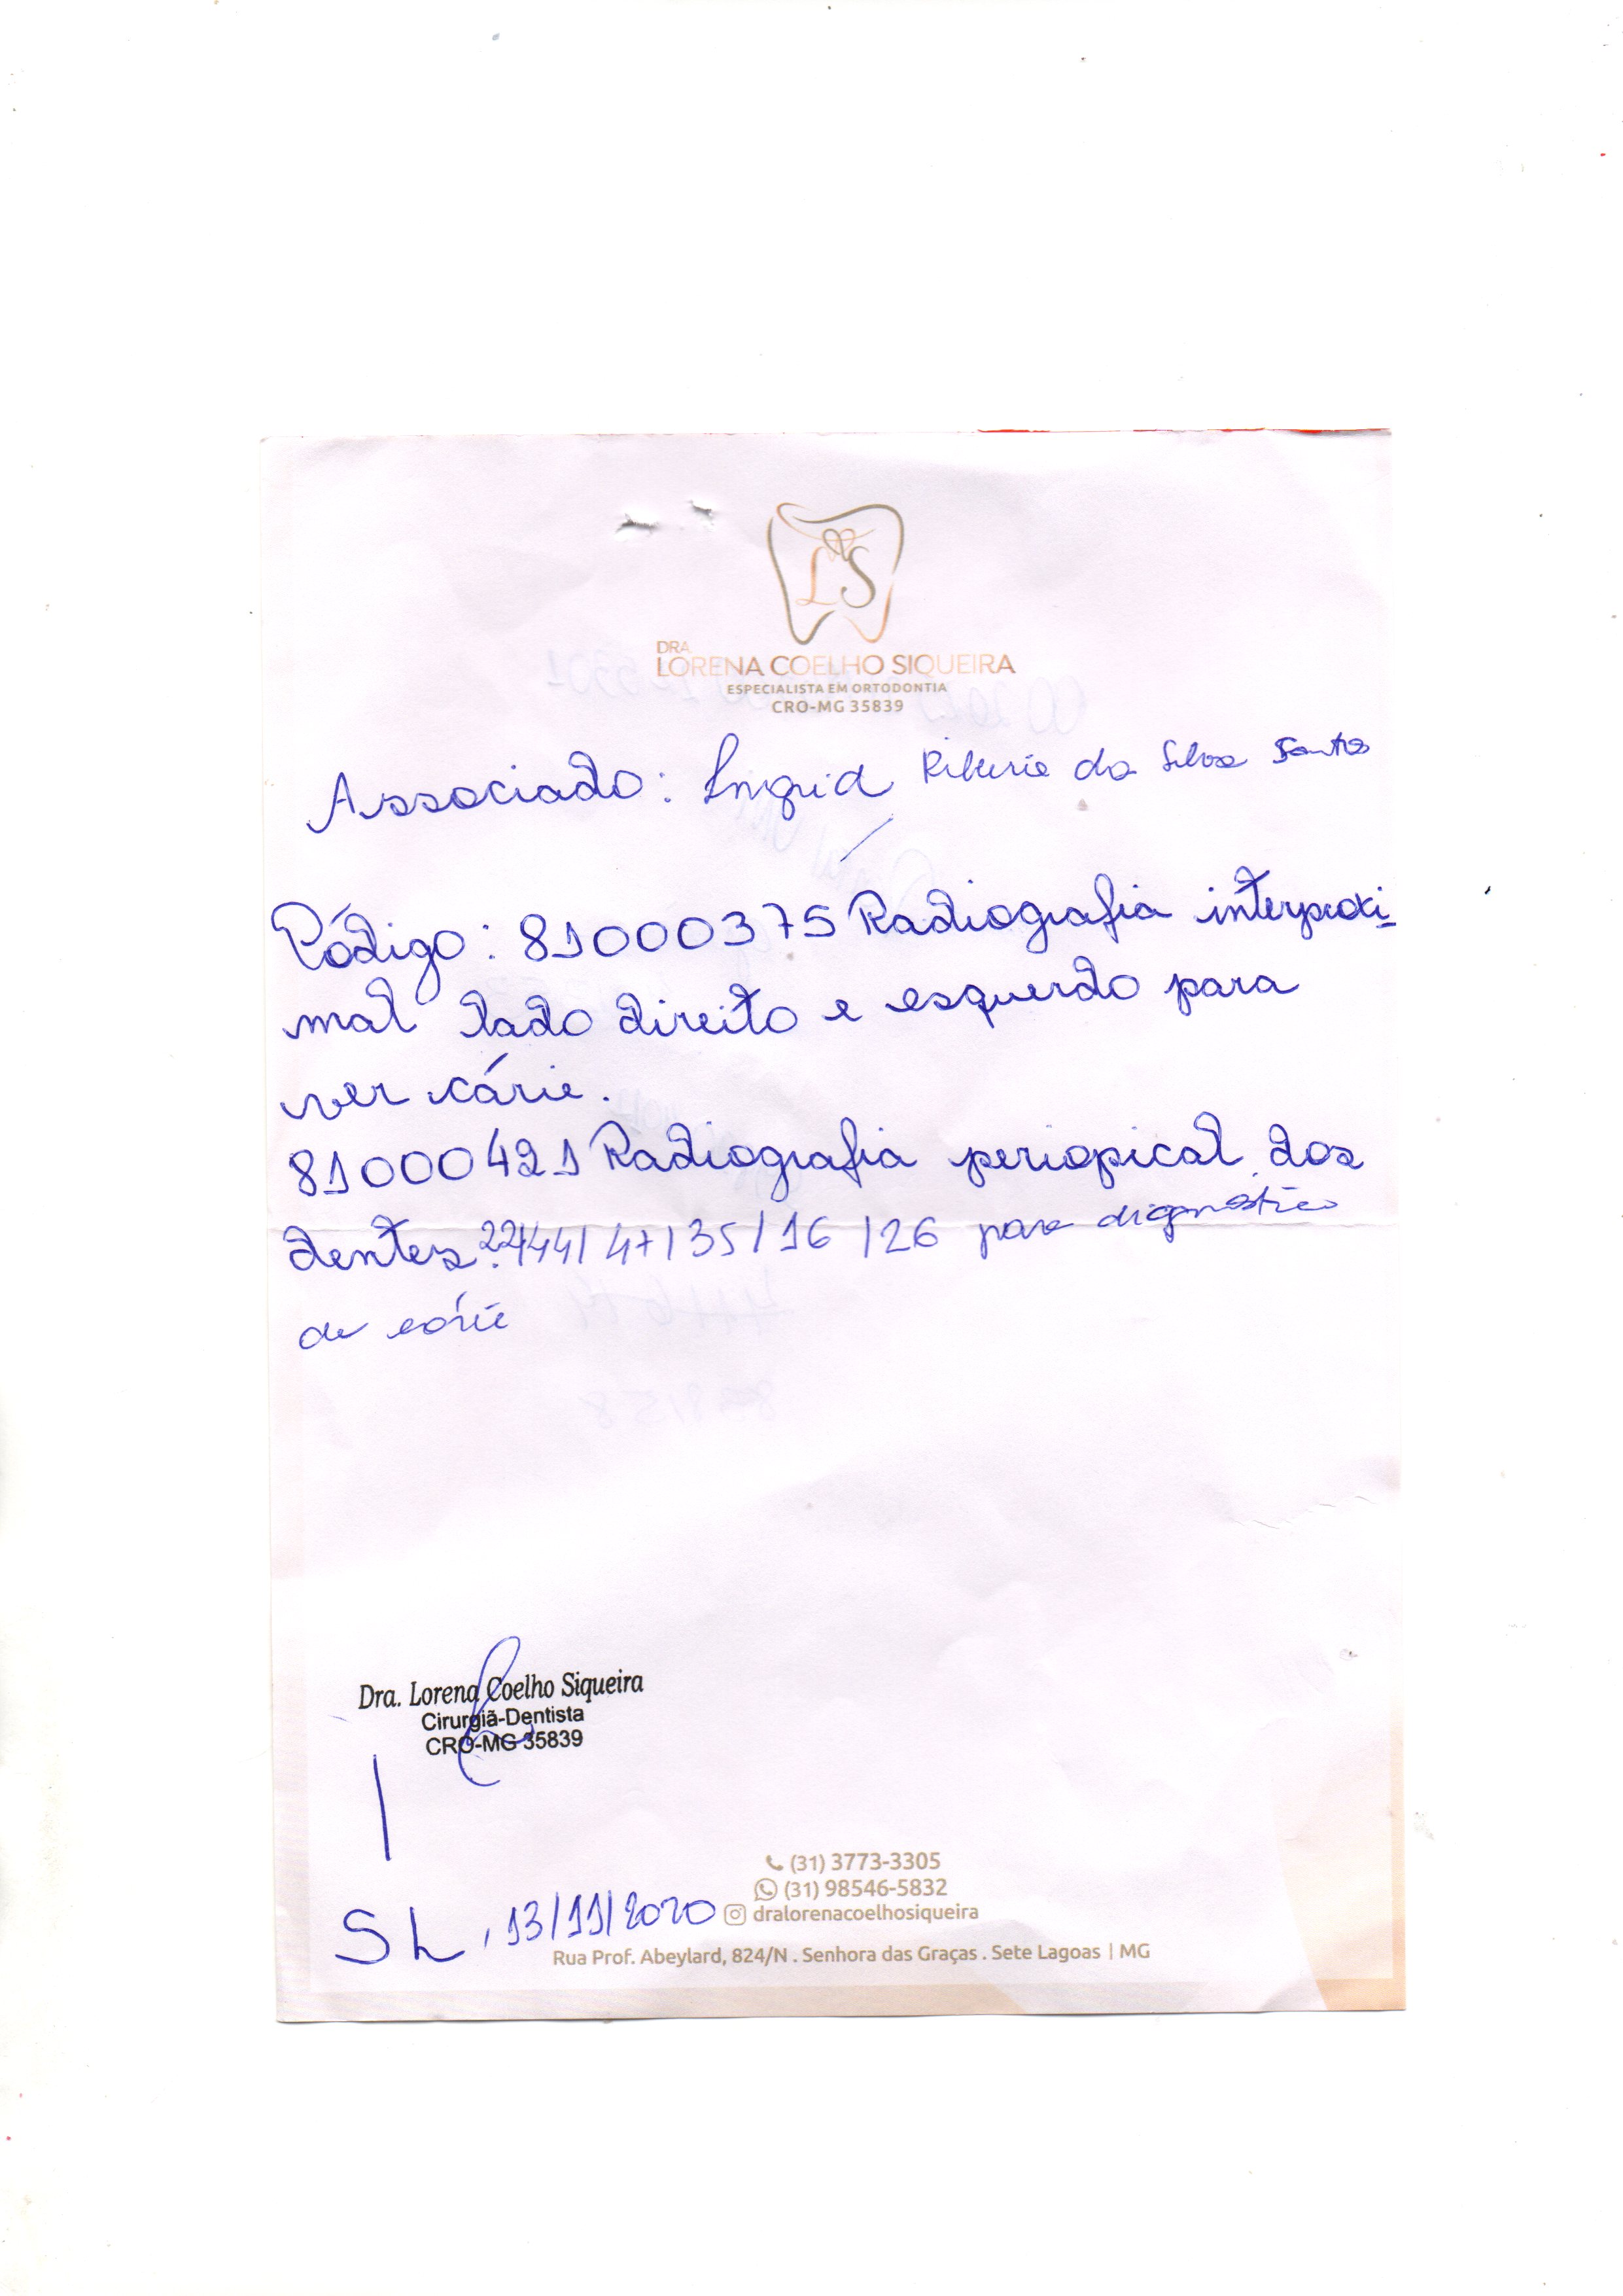 LS
DRA.
LORENA COELHO SIQUEIRA
ESPECIALISTA EM ORTODONTIA
CRO-MG 35839
Associado: Ingrid Ribeiro da Silva Santos
Código: 81000375 Radiografia interproxi-
mal lado direito e esquerdo para
ver cárie.
81000421 Radiografia periapical dos
dentes: 22/44/47/35/16/26 para diagnóstico
de cárie
Dra. Lorena Coelho Siqueira
Cirurgiã-Dentista
CRO-MG 35839
(31) 3773-3305
(31) 98546-5832
dralorenacoelhosiqueira
SL, 13/11/2020
Rua Prof. Abeylard, 824/N . Senhora das Graças . Sete Lagoas | MG